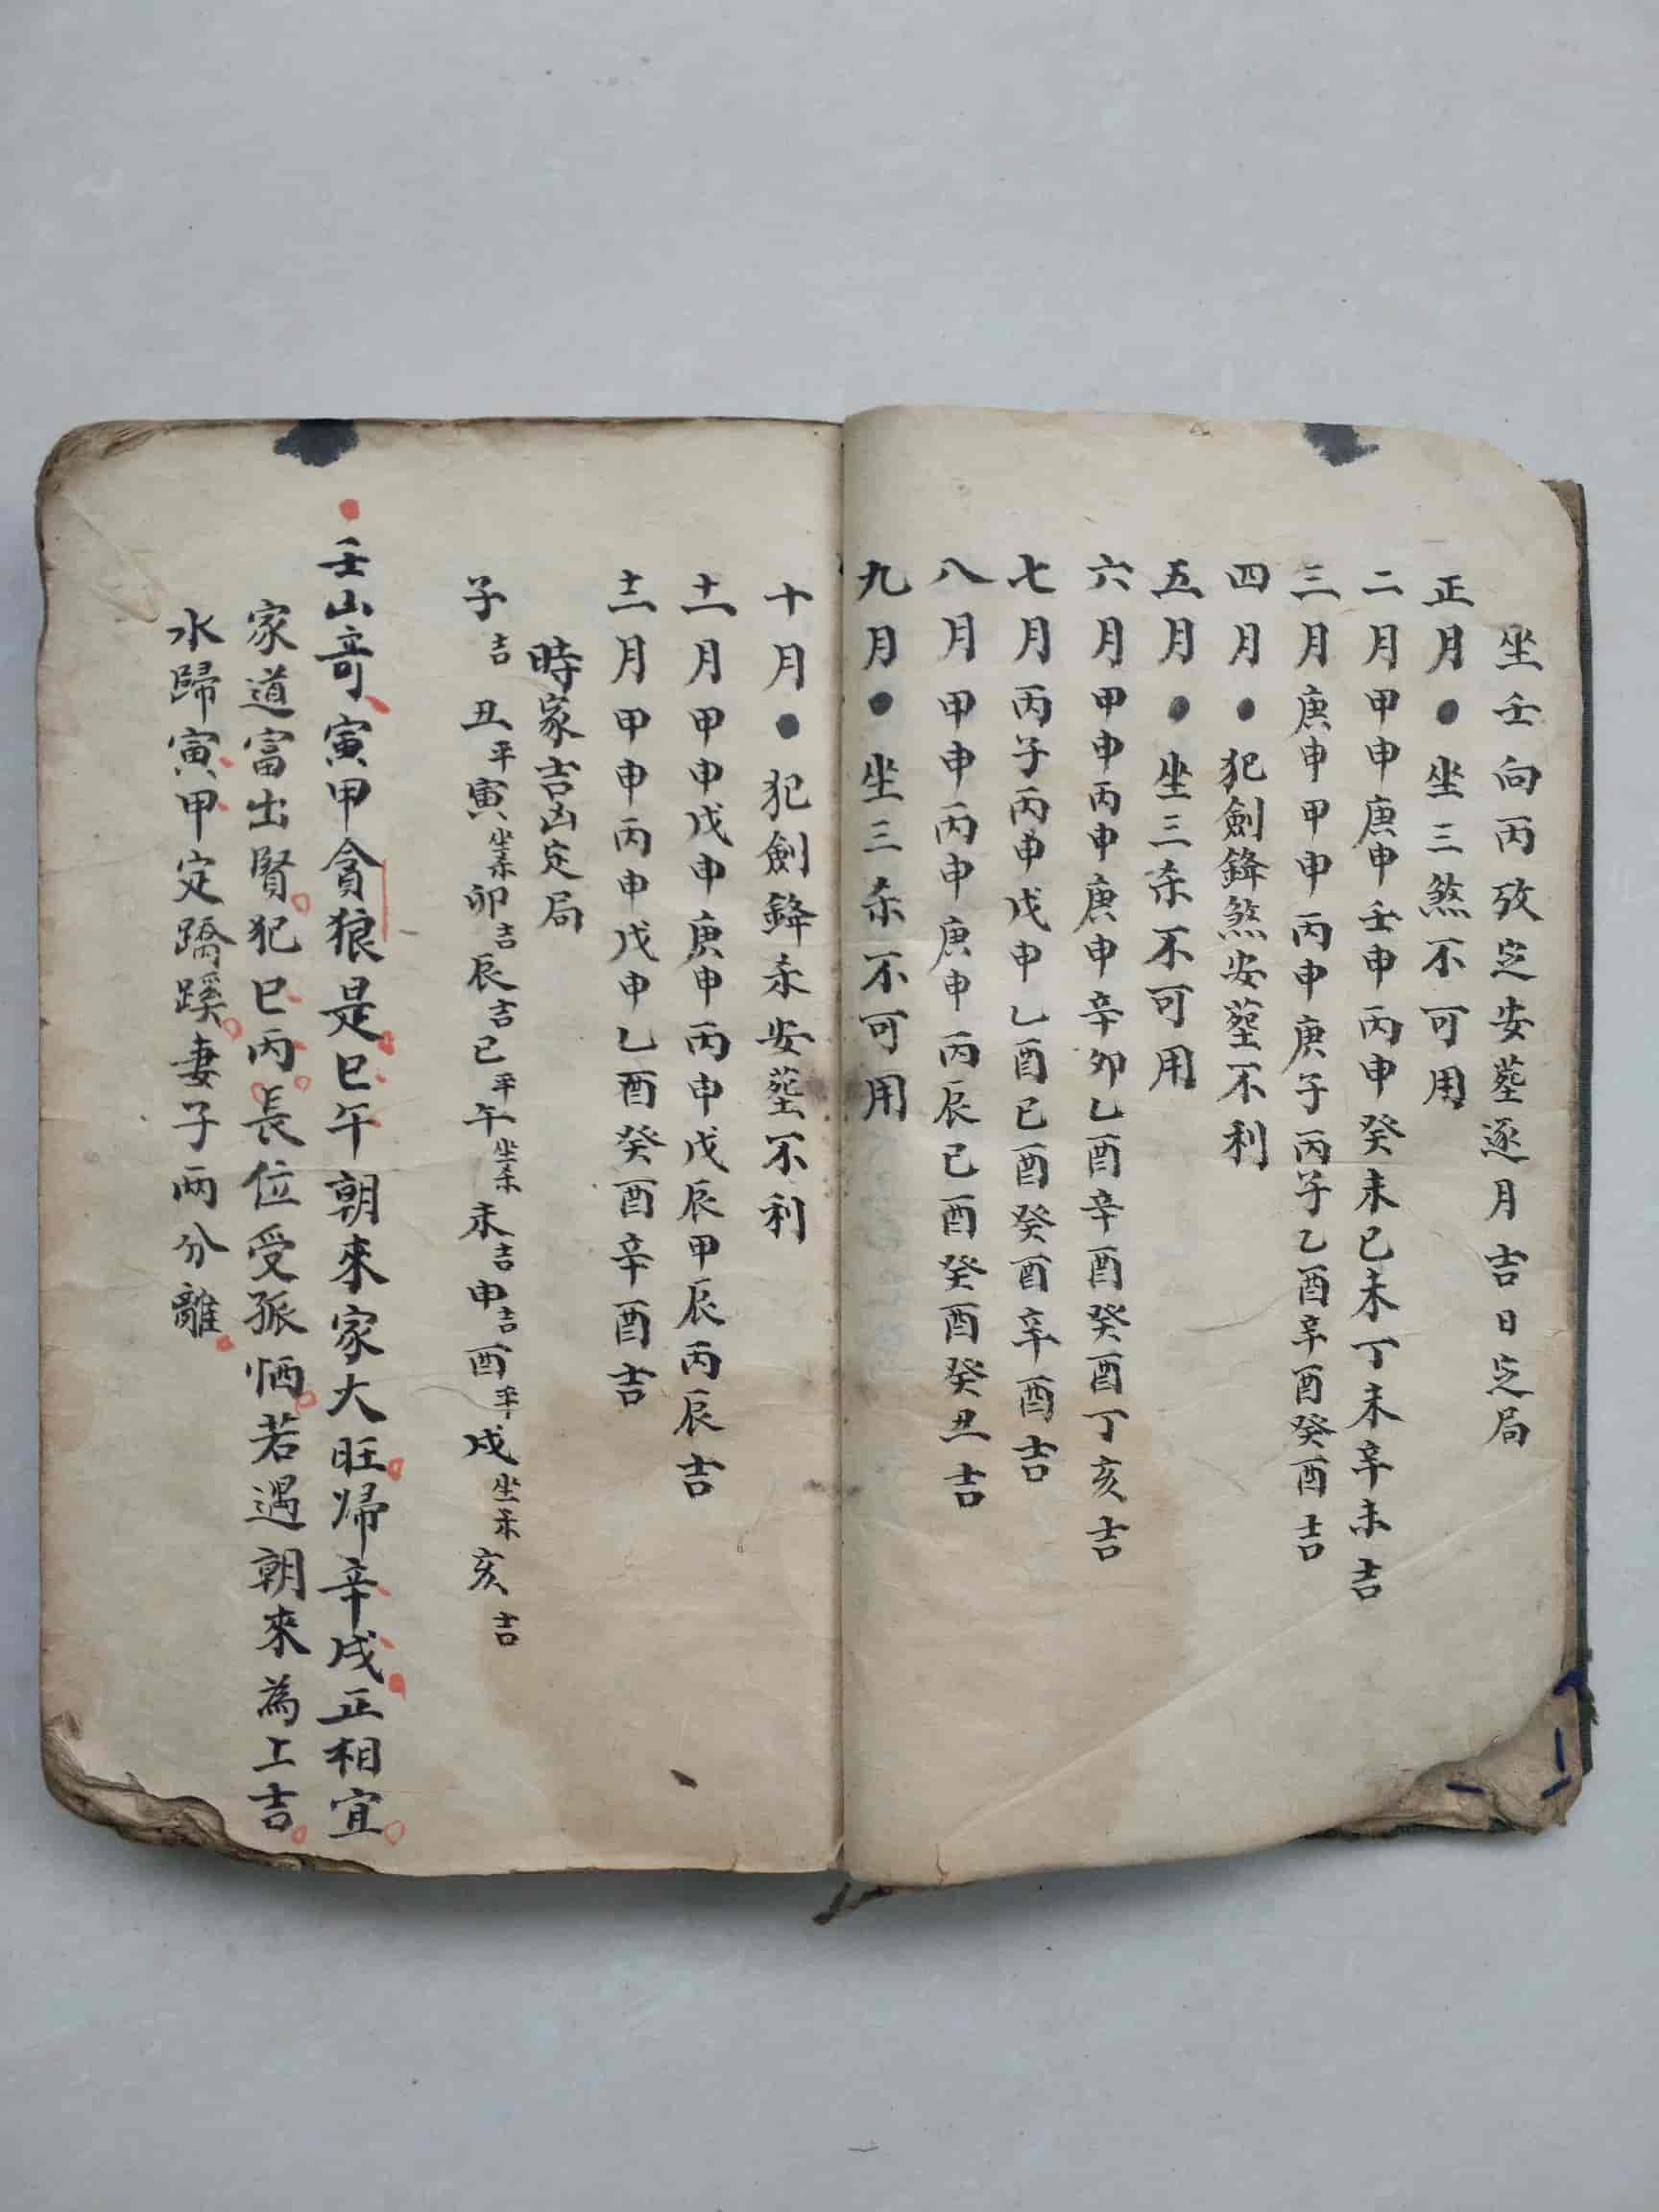 坐壬向丙攷定安葬逐月吉日定局
正月●坐三煞不可用
二月甲申庚申壬申丙申癸未己未丁未辛未吉
三月庚申甲申丙申庚子丙子乙酉辛酉癸酉吉
四月●犯劍鋒煞安葬不利
五月●坐三杀不可用
六月甲申丙申庚申辛卯乙酉辛酉癸酉丁亥吉
七月丙子丙申戊申乙酉己酉癸酉辛酉吉
八月甲申丙申庚申丙辰己酉癸酉癸丑吉
九月●坐三杀不可用
十月●犯劍鋒杀安葬不利
十一月甲申戊申庚申丙申戊辰甲辰丙辰吉
十二月甲申丙申戊申乙酉癸酉辛酉吉
時家吉凶定局
子吉丑平寅坐杀卯吉辰吉巳平午坐杀未吉申吉酉平戌坐杀亥吉
壬山哥寅甲貪狼是巳午朝來家大旺帰辛戌正相宜
家道富出賢犯巳丙長位受孤恓若遇朝來為上吉
水歸寅甲定蹻蹊妻子兩分離